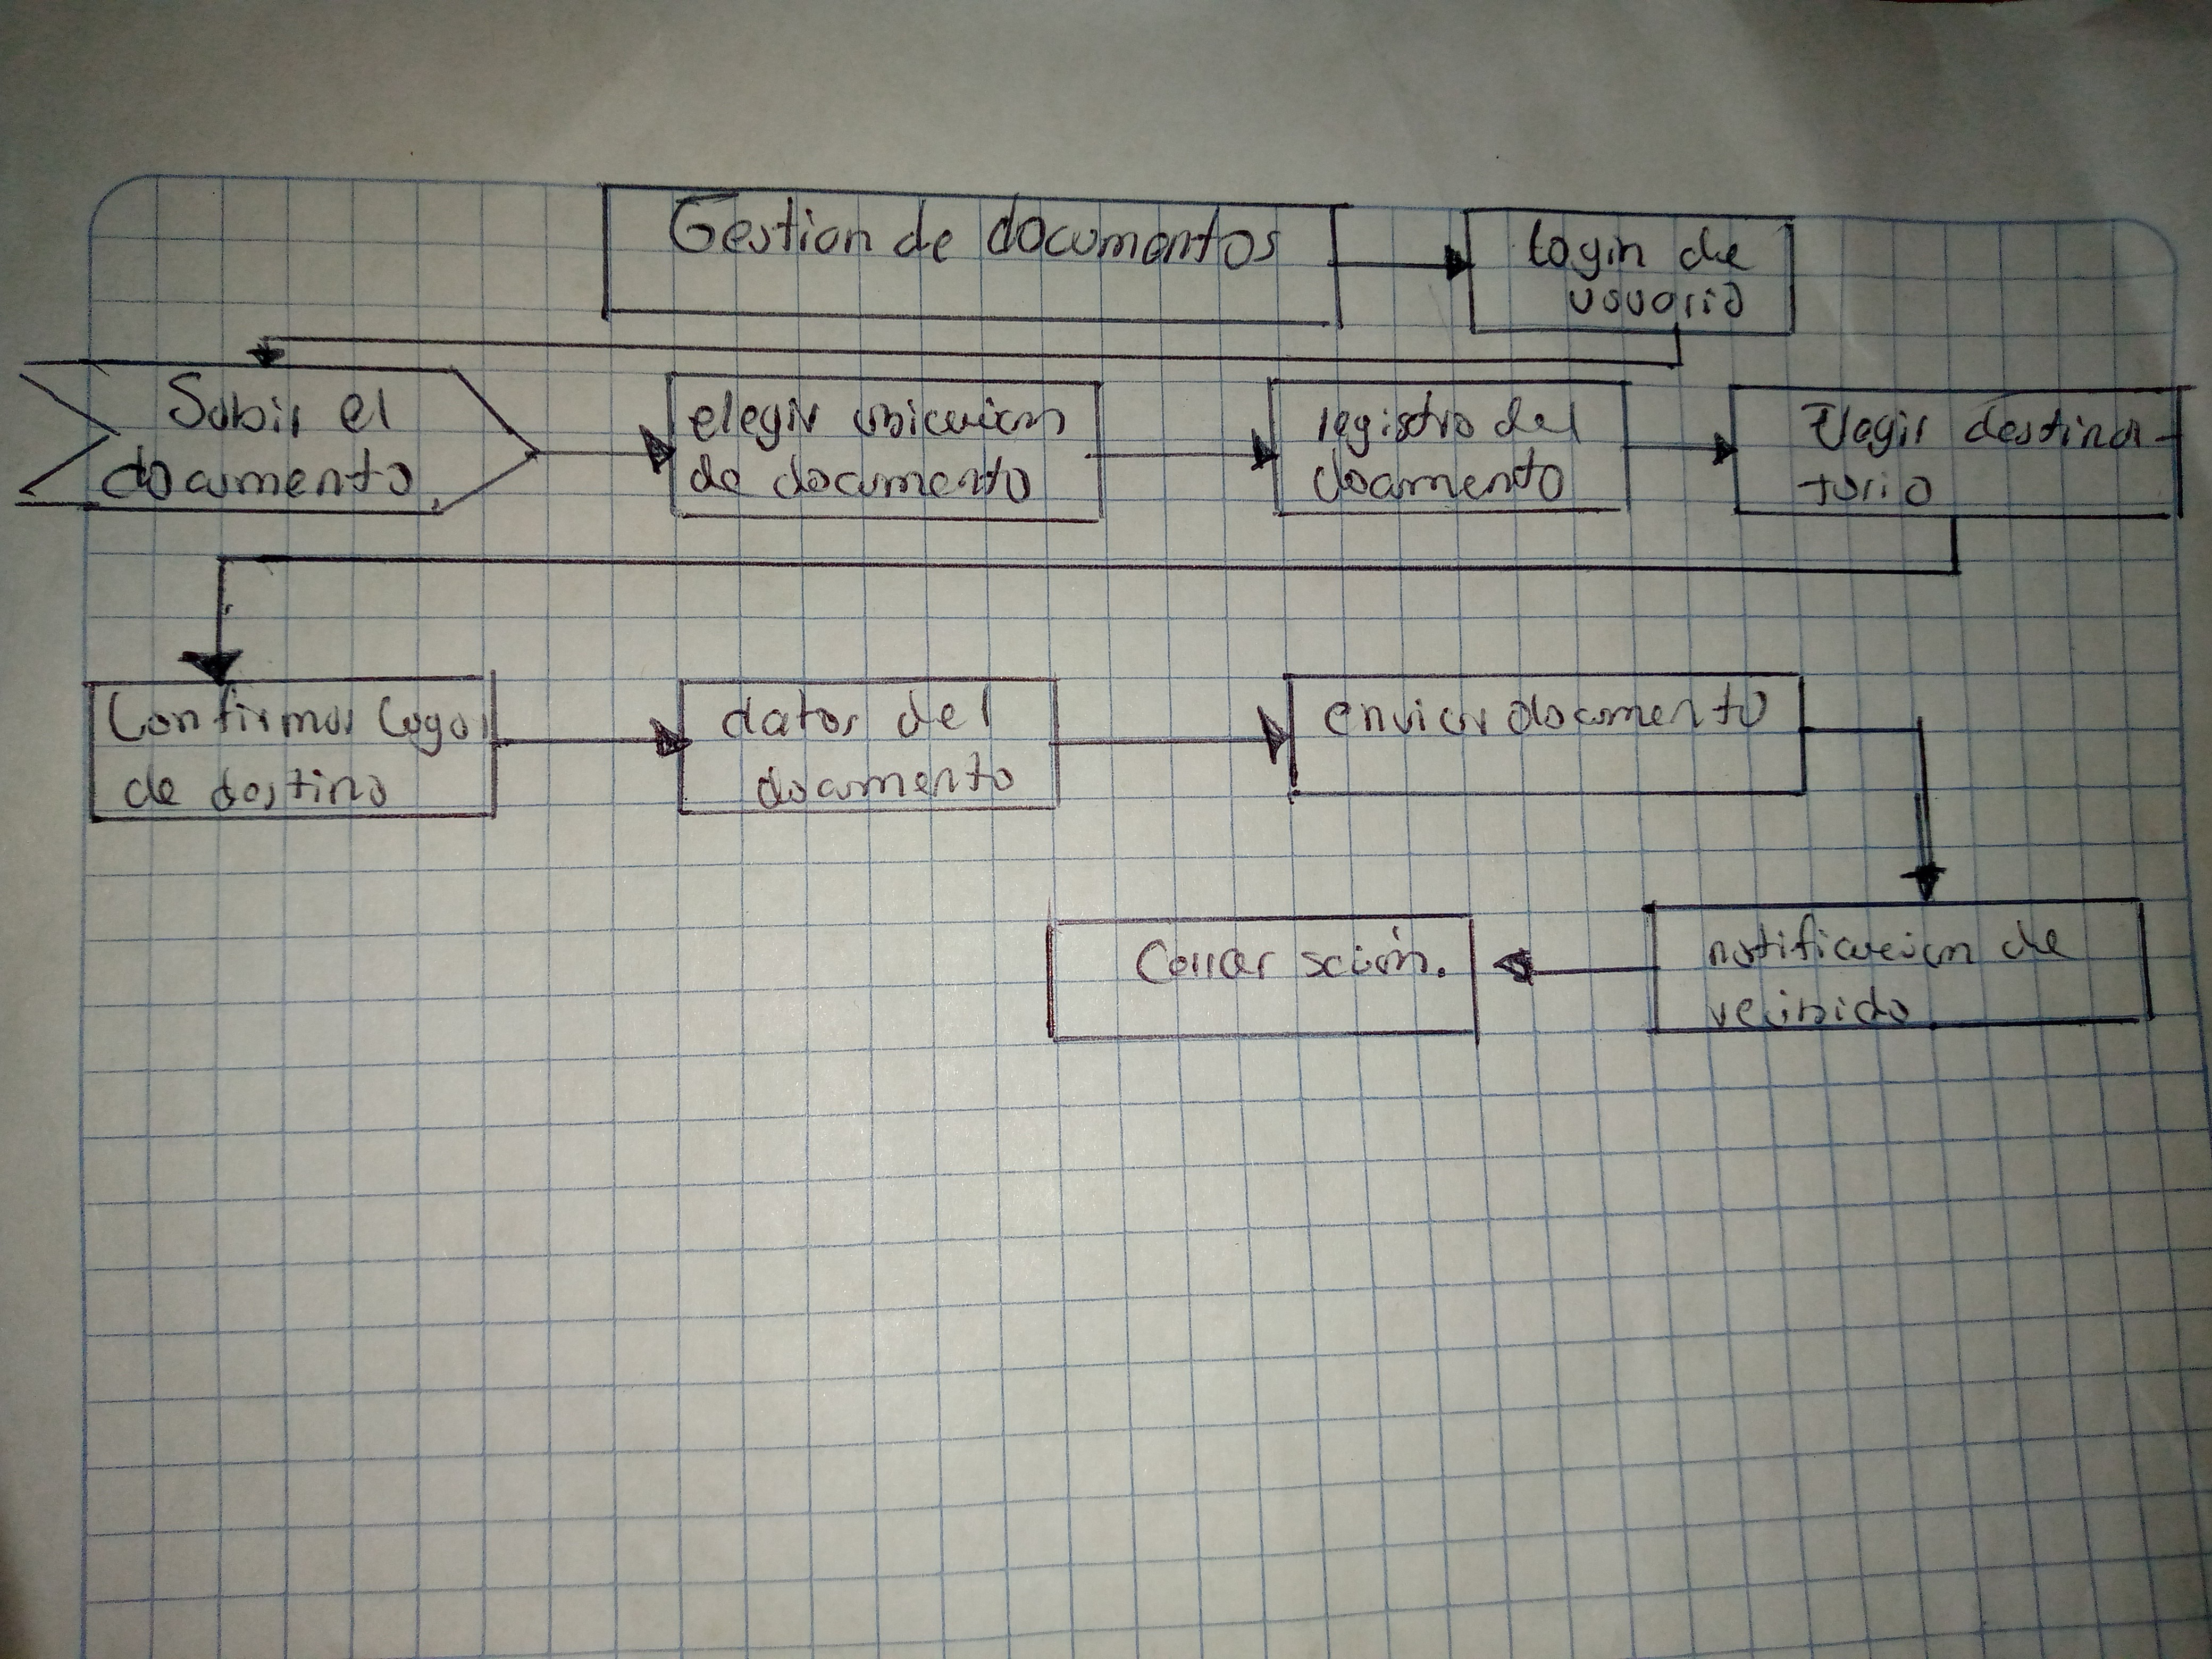 Gestion de documentos
login de
usuario
Subir el
documento
elegir ubicacion
de documento
registro del
documento
Elegir destina-
tario
Confirmar lugar
de destino
datos del
documento
enviar documento
notificacion de
recibido
Cerrar sción.